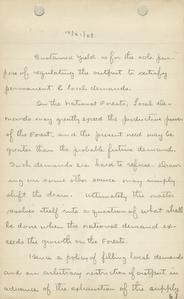 Sustained yield is for the sole pur-
pose of regulating the output to satisfy
permanent & local demands.
On the National Forests, local de-
mands may greatly exceed the productive power
of the Forest, and the present need may be
greater than the probable future demand.
Such demands are hard to refuse. Draw-
ing on some other source may simply
shift the drain. Ultimately the matter
resolves itself into a question of what shall
be done when the national demand ex-
ceeds the growth on the Forests.
Hence a policy of filling local demands
and an arbitrary restriction of output in
advance of the exhaustion of the supply